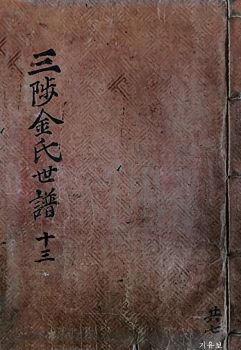 三陟金氏世譜 十三
共七
기유보